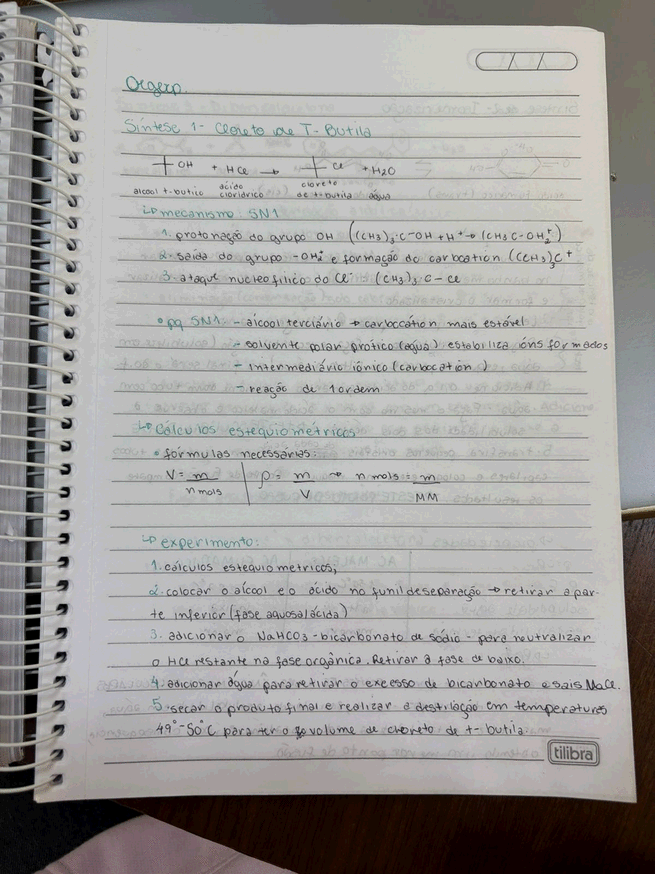 Orgexp.
Síntese 1 - Cloreto de T-Butila
OH + HCl → Cl + H2O
álcool t-butico ácido clorídrico cloreto de t-butila água
↳ mecanismo SN1
1. protonação do grupo OH ((CH3)3·C-OH + H⁺ → (CH3C-OH2⁺)
2. saída do grupo -OH2⁺ e formação do carbocation (CCH3)3C⁺
3. ataque nucleofílico do Cl⁻ (CH3)3·C-Cl
• pq SN1. - álcool terciário → carbocátion mais estável
- solvente polar prótico (água) estabiliza íons formados
- intermediário iônico (carbocation)
- reação de 1 ordem
↳ Cálculos estequiométricos
• fórmulas necessárias:
V = m / n mols | ρ = m / V → n mols = m / MM
↳ experimento:
1. cálculos estequiometricos;
2. colocar o álcool e o ácido no funil de separação → retirar a par-
te inferior (fase aquosa/ácida)
3. adicionar o NaHCO3 - bicarbonato de sódio - para neutralizar
o HCl restante na fase orgânica. Retirar a fase de baixo.
4. adicionar água para retirar o excesso de bicarbonato e sais NaCl.
5. secar o produto final e realizar a destilação em temperaturas
49°-50°C para ter o volume de cloreto de t-butila.
tilibra